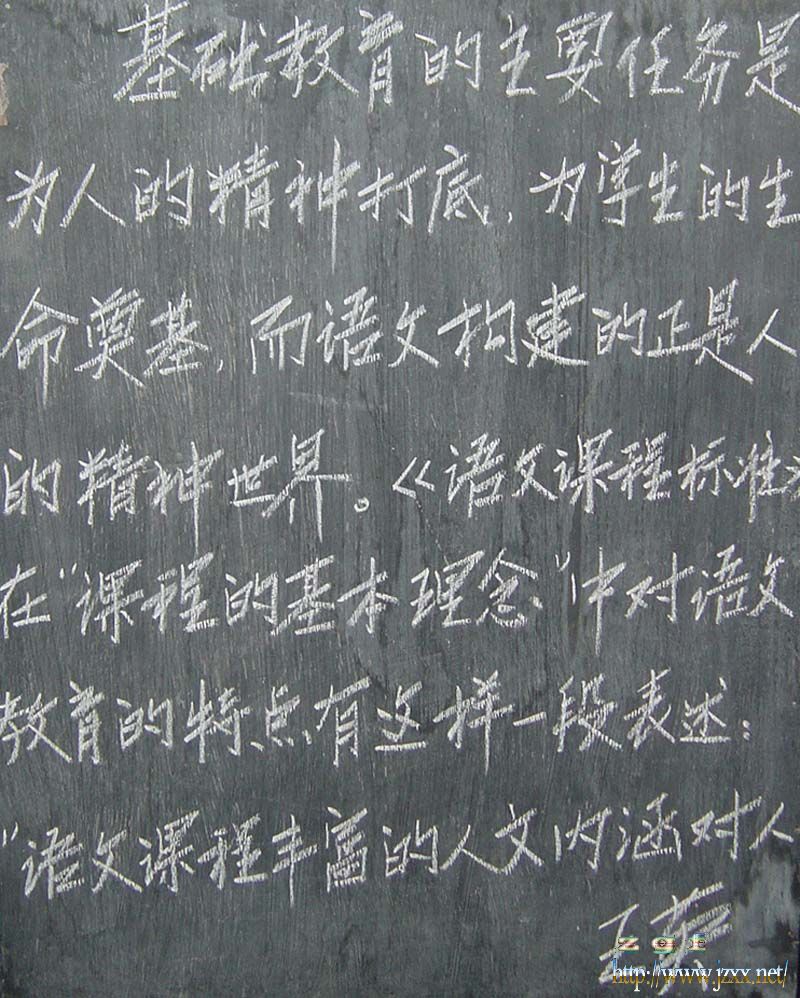 基础教育的主要任务是
为人的精神打底，为学生的生
命奠基，而语文构建的正是人
的精神世界。《语文课程标准
在“课程的基本理念”中对语文
教育的特点有这样一段表述：
“语文课程丰富的人文内涵对人
z g f
http://www.jzxx.net/